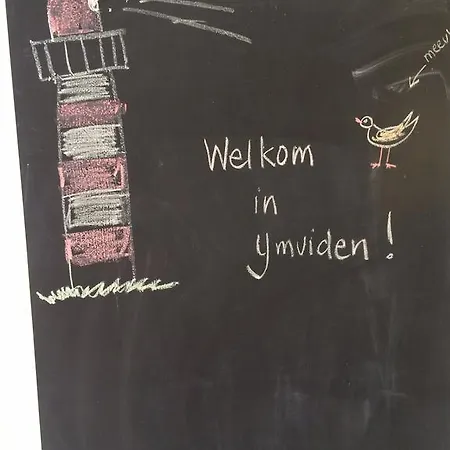 meeu
Welkom
in
ymuiden!